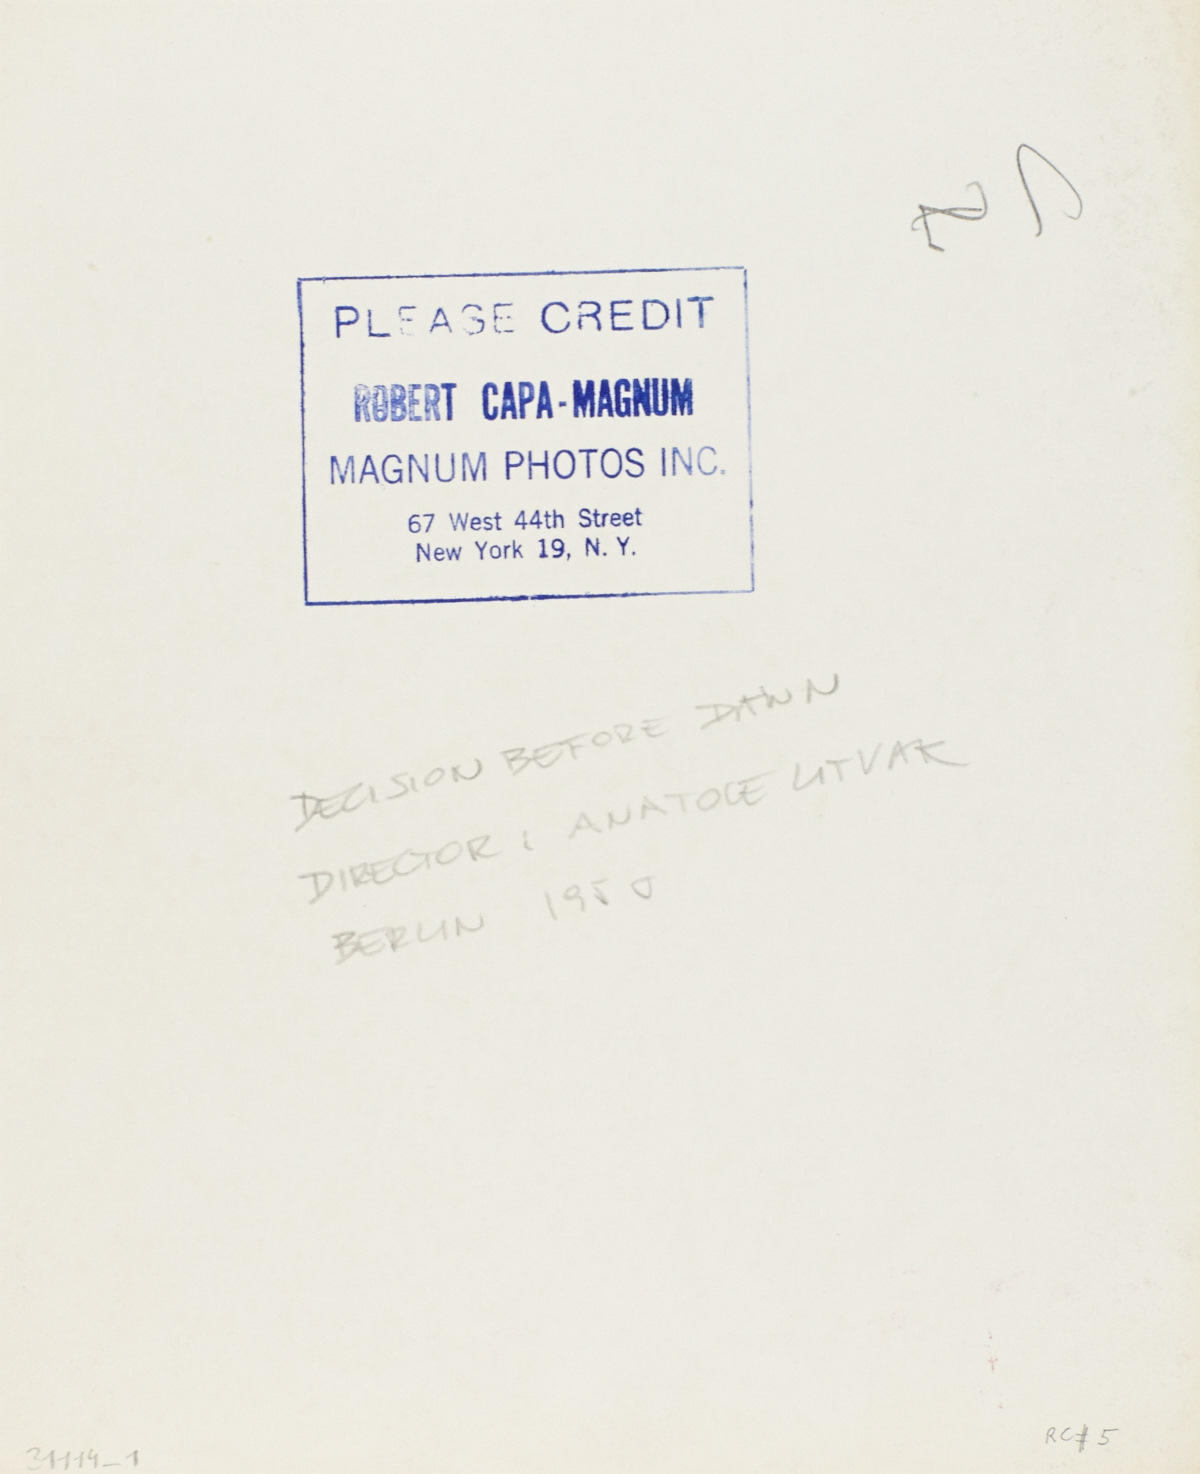 PLEASE CREDIT
ROBERT CAPA-MAGNUM
MAGNUM PHOTOS INC.
67 West 44th Street
New York 19, N. Y.
DECISION BEFORE DAWN
DIRECTOR : ANATOLE LITVAK
BERLIN 1950
RC# 5
31114_1